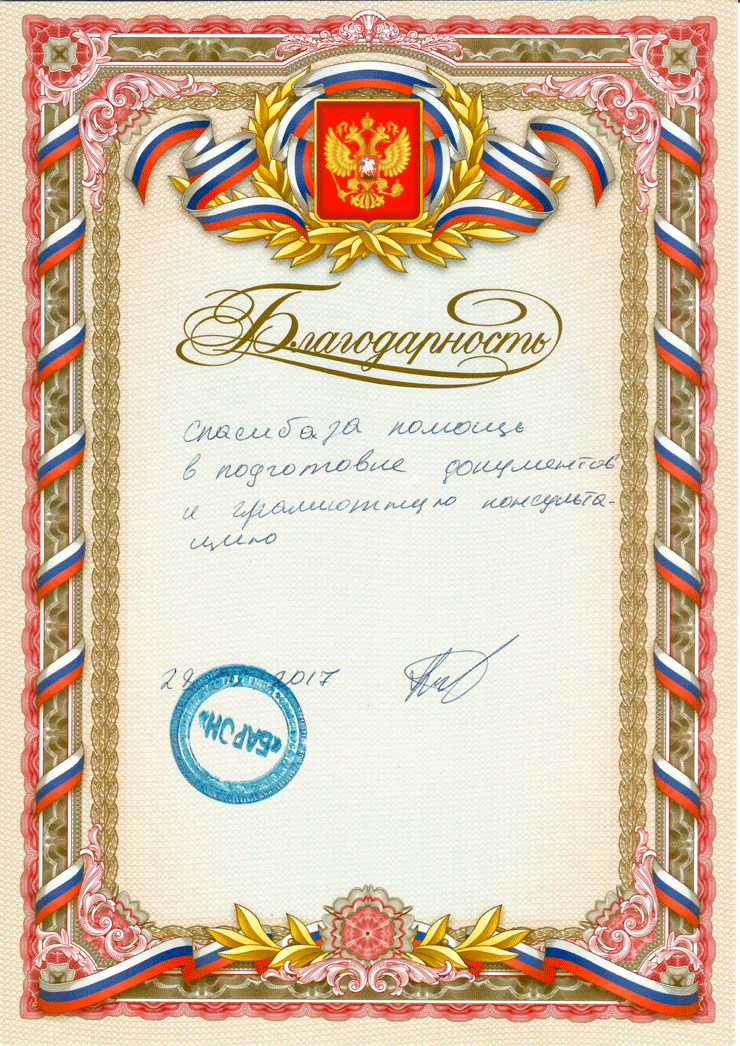 Благодарность
Спасиба за помощь
в подготовке документов
и грамотную консульта-
цию
2017
«БАРОН»